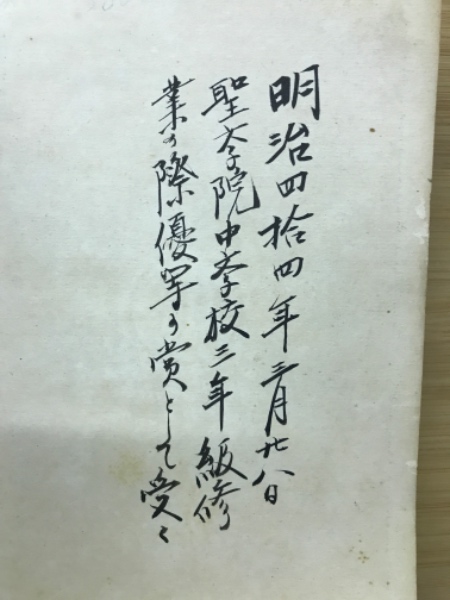 明治四拾四年三月廿八日
聖学院中学校三年級修
業の際優等の賞として受く